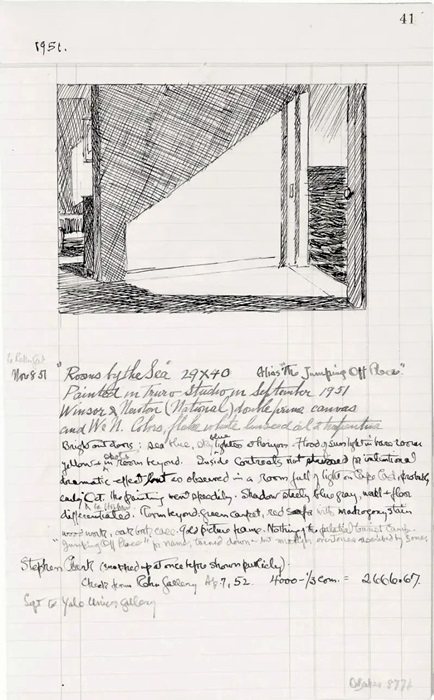 41
1951.
"Rooms by the Sea" 29x40 Alias "The Jumping Off Place".
Nov 8 51
Painted in Truro Studio in September 1951
Winsor & Newton (National) double prime canvas
and W. N. Colors, flake white linseed oil & turpentine
Bright out doors: sea blue, sky lighter blue horizon. Flood sunlight in bare room
yellow in room beyond. Inside contrasts not stressed for intentional
dramatic effect but as observed in a room full of light on Cape Cod, probably
early Oct. the painting went speedily. Shadow steely blue gray, wall + floor
differentiated. Room beyond, green carpet, red sofa with mahogony stain
wood work, gold picture frame. Nothing of the
"Jumping Off Place" for name, turned down overtones by some.
Stephen Clark (snatched up at once before shown publicly).
Check from Rehn Gallery Ap. 7, 52. 4000 - 1/3 com. = 2666.67.
to Yale Univ. Gallery